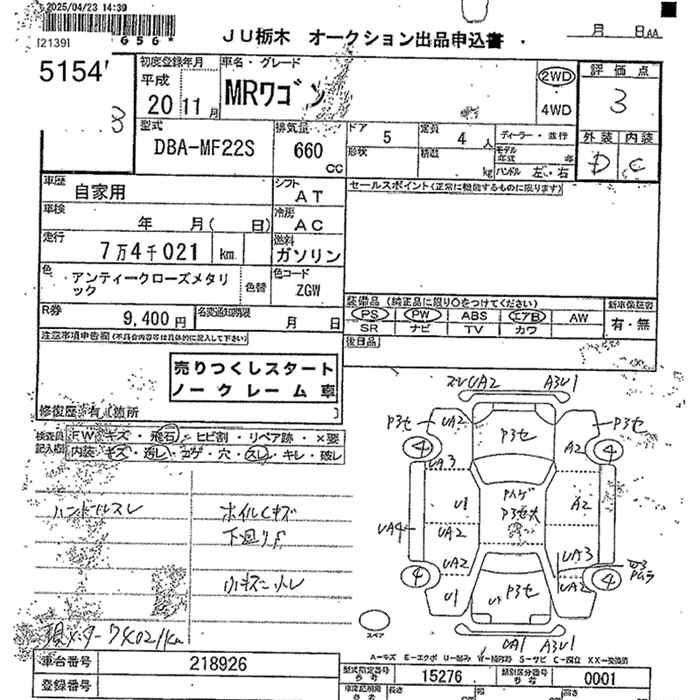 2025/04/23 14:39
[2139]
ＪＵ栃木 オークション出品申込書
月 日AA
5154
初度登録年月
平成
20 11月
車名・グレード
MRワゴン
2WD
4WD
評価点
3
型式
DBA-MF22S
排気量
660
cc
ドア 5
定員 4人
形状
積載 kg
ディーラー・並行
モデル年式 年
ハンドル 左・右
外装 内装
D C
車歴
自家用
シフト
AT
セールスポイント(正常に機能するものに限ります)
車検
年 月( 日)
冷房
AC
走行
7万4千021 km
燃料
ガソリン
色
アンティークローズメタリック
色替
色コード
ZGW
R券
9,400円
名変通知期限
月 日
装備品(純正品に限り○をつけてください)
PS PW ABS エアB AW
SR ナビ TV カワ
新車保証書
有・無
後日品
注意事項申告欄(不具合内容等は具体的に記入して下さい)
売りつくしスタート
ノークレーム車
修復歴 有( 箇所 )
検査員記入欄
FW キズ・飛石・ヒビ割・リペア跡・×要
内装 キズ・汚レ・コゲ・穴・スレ・キレ・破レ
ハンドルスレ
ホイルCキズ
小キズ
UA2 A3U1
P3セ UA2 P3セ P3セ
4 A2 4
UA3
U1
P3セ大
A2
UA4 UA2
UA2 UA3
4 P3セ 4
U1 UA2
UA1 A3U1
スペア
A-キズ E-エクボ U-凹み W-補修跡 S-サビ C-腐蝕 XX-交換済
車台番号 218926
登録番号
型式指定番号 参考 15276
類別区分番号 参考 0001
長さ 幅 高さ